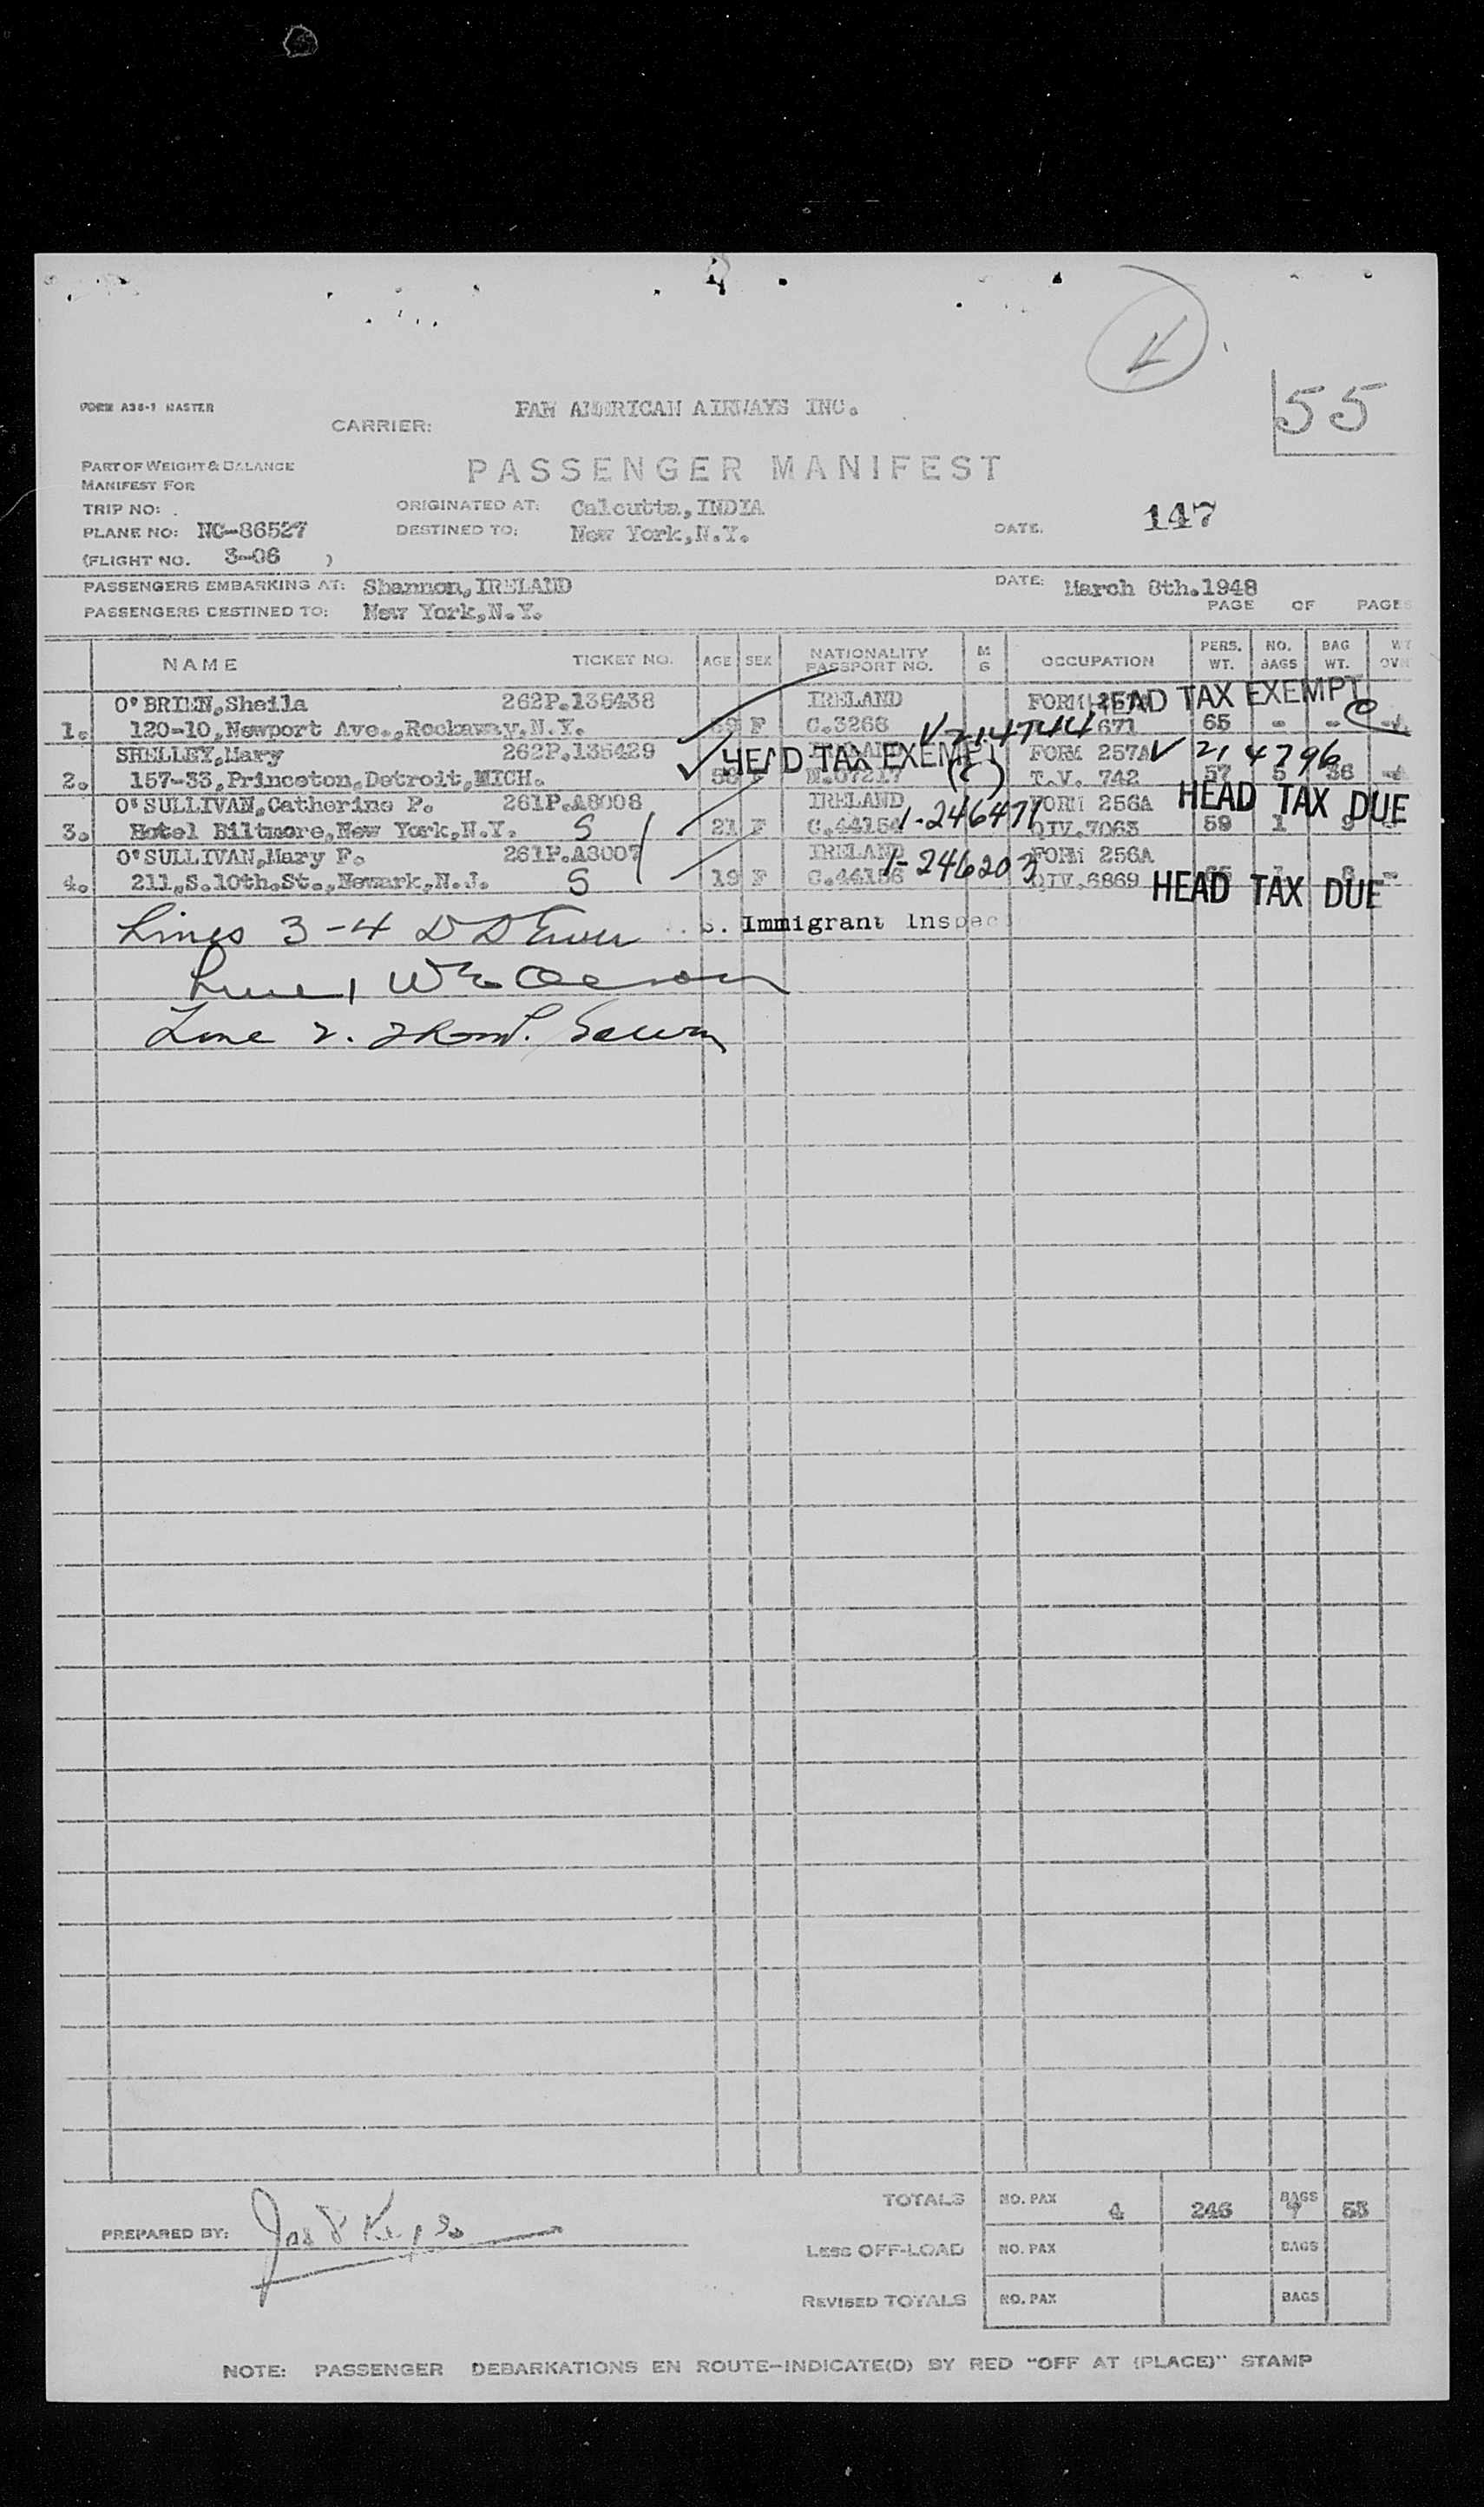 55
FORM A38-1 MASTER
CARRIER: PAN AMERICAN AIRWAYS INC.
PART OF WEIGHT & BALANCE
MANIFEST FOR
PASSENGER MANIFEST
TRIP NO: .
ORIGINATED AT: Calcutta, INDIA
147
PLANE NO: NC-86527
DESTINED TO: New York, N.Y.
DATE:
(FLIGHT NO. 3-06 )
PASSENGERS EMBARKING AT: Shannon, IRELAND
DATE: March 8th. 1948
PASSENGERS DESTINED TO: New York, N.Y.
PAGE OF PAGES
NAME TICKET NO. AGE SEX NATIONALITY PASSPORT NO. M G OCCUPATION PERS. WT. NO. BAGS BAG WT. WT
O'BRIEN, Sheila 262P.135438 IRELAND FORM HEAD TAX EXEMPT
1. 120-10, Newport Ave., Rockaway, N.Y. F C.3268 V 214744 671 65 - -
SHELLEY, Mary 262P.135429 HEAD TAX EXEMPT FORM 257A V 214796
2. 157-33, Princeton, Detroit, MICH. (C) T.V. 742 57 5 36
O'SULLIVAN, Catherine P. 261P.A8008 IRELAND FORM 256A HEAD TAX DUE
3. Hotel Biltmore, New York, N.Y. S 21 F C.44154 QIV.7063 59 1 9
O'SULLIVAN, Mary F. 261P.A8007 IRELAND I-246203 FORM 256A
4. 211, S. 10th. St., Newark, N.J. S 19 F C.44156 QIV.6869 HEAD TAX DUE
Lines 3-4 Immigrant Inspec
Line 1
Line 2.
TOTALS NO. PAX 4 246 BAGS 7 53
PREPARED BY:
LESS OFF-LOAD NO. PAX BAGS
REVISED TOTALS NO. PAX BAGS
NOTE: PASSENGER DEBARKATIONS EN ROUTE-INDICATE(D) BY RED "OFF AT (PLACE)" STAMP